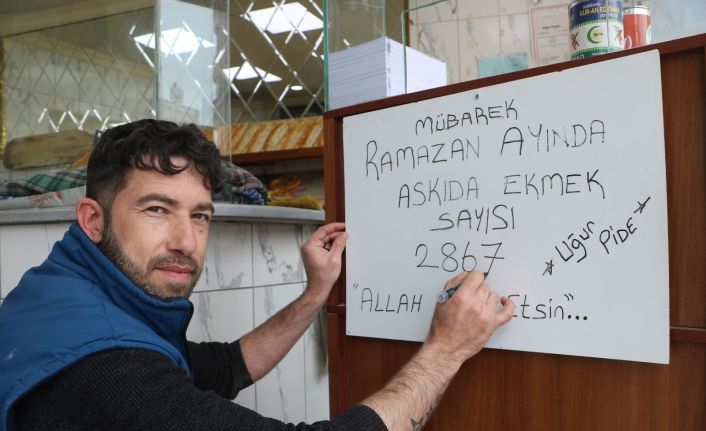 MÜBAREK
RAMAZAN AYINDA
ASKIDA EKMEK
SAYISI
2867
★ UĞUR
PİDE ★
"ALLAH Etsin"...